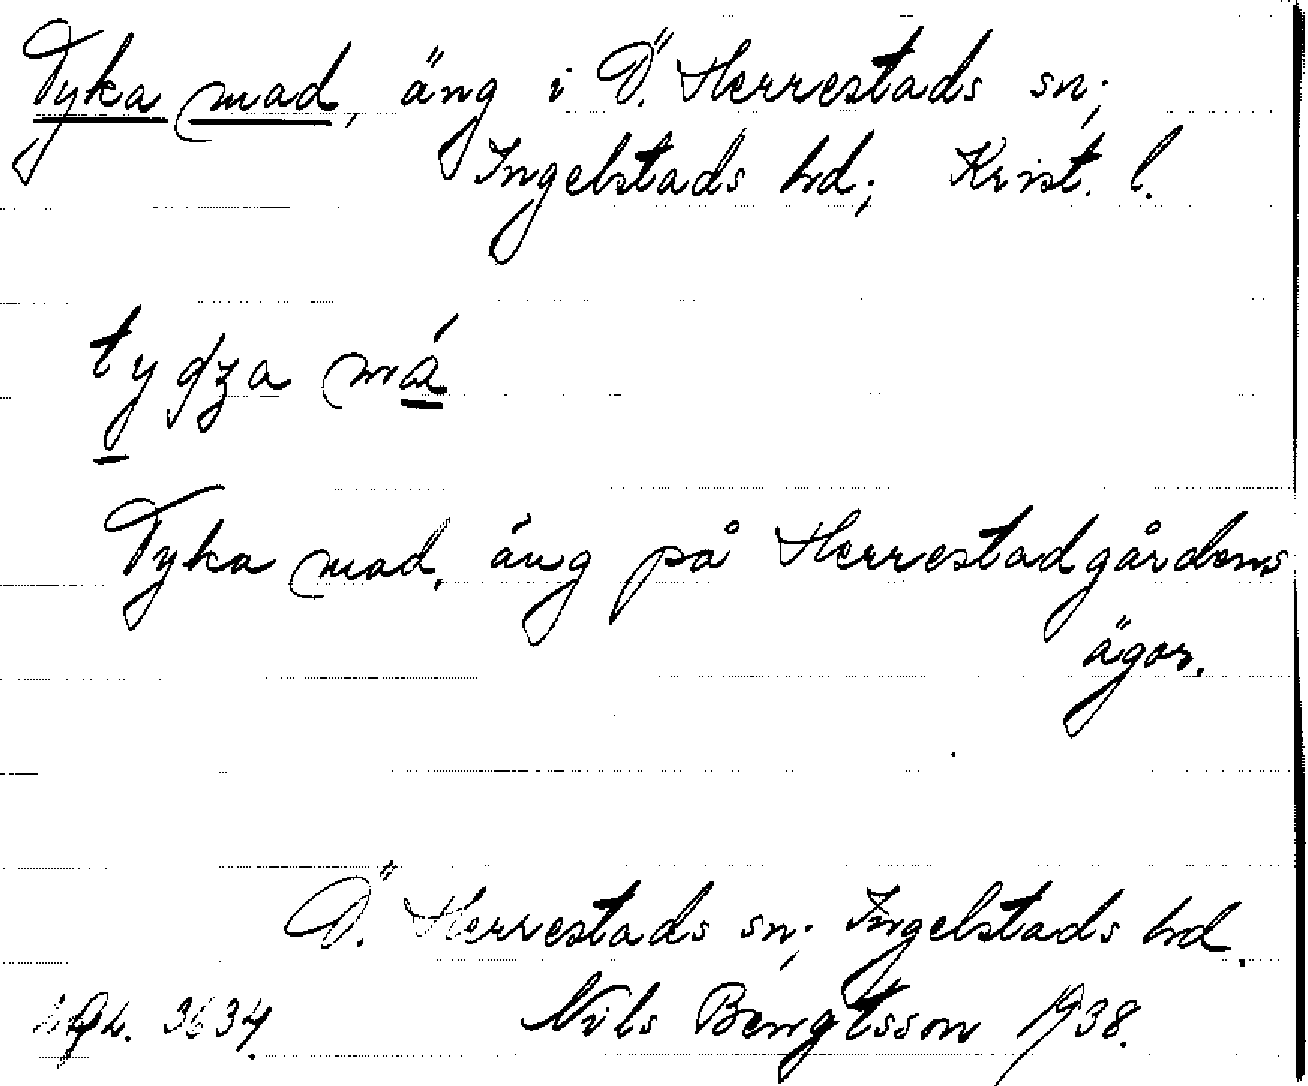 Tyka mad, äng i Ö. Herrestads sn;
Ingelstads hd; Krist. l.
må
Tyka mad, äng på Herrestadgårdens
ägor.
Ö. Herrestads sn; Ingelstads hd.
3634. Nils Bengtsson 1938.